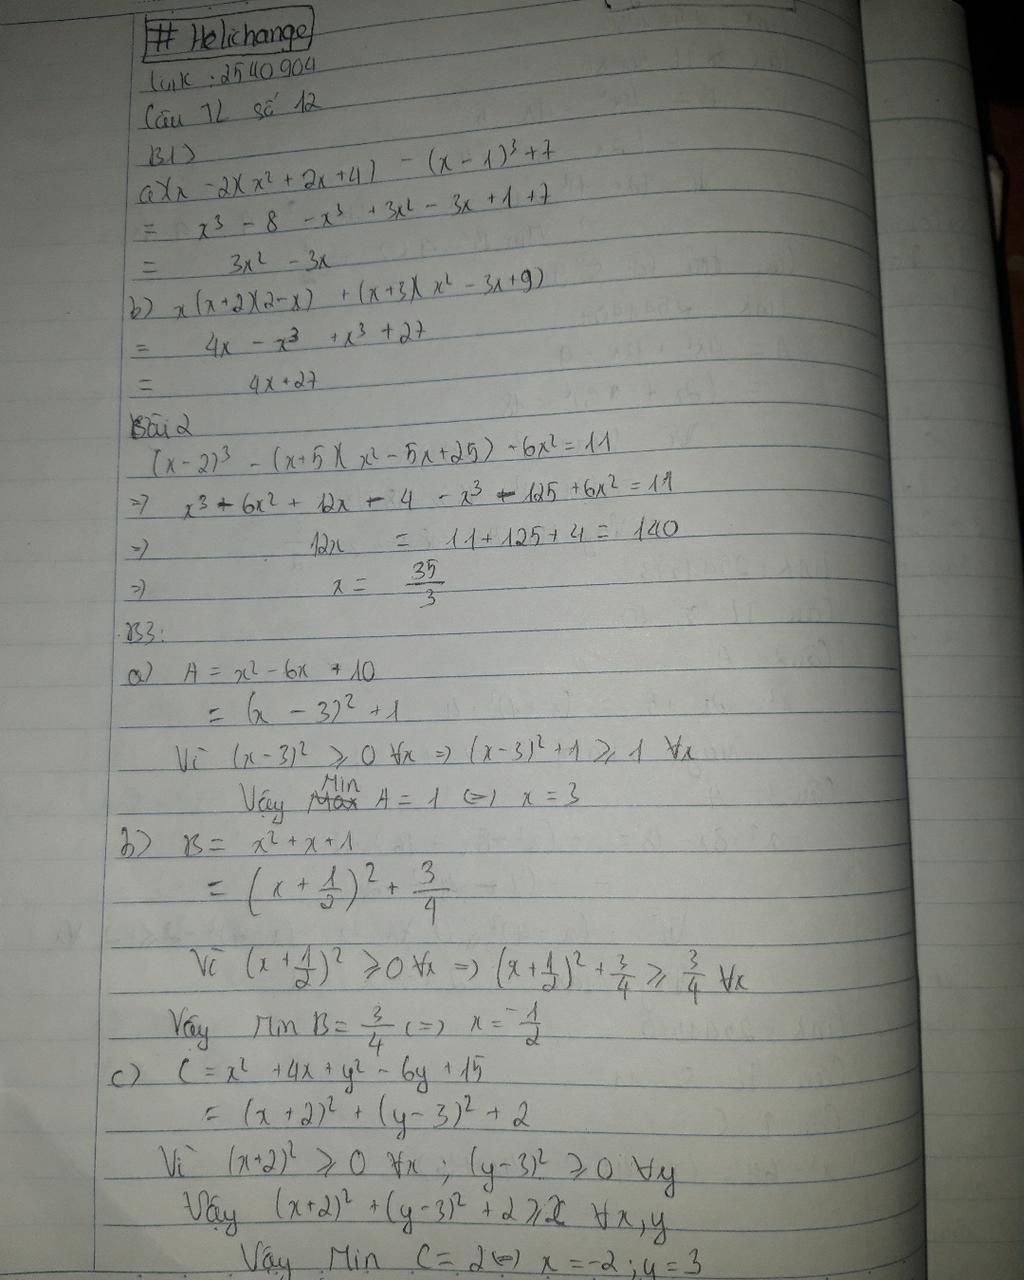 # Helichange
link : 2540904
Câu TL số 12
B1)
a)(x - 2)(x² + 2x + 4) - (x - 1)³ + 7
= x³ - 8 - x³ + 3x² - 3x + 1 + 7
= 3x² - 3x
b) x(x+2)(2-x) + (x+3)(x² - 3x+9)
= 4x - x³ + x³ + 27
= 4x+27
Bài 2
(x-2)³ - (x+5)(x² - 5x+25) - 6x² = 11
=> x³ - 6x² + 12x - 4 - x³ - 125 + 6x² = 11
=> 12x = 11 + 125 + 4 = 140
=> x = 35/3
B3:
a) A = x² - 6x + 10
= (x - 3)² + 1
Vì (x-3)² ⩾ 0 ∀x => (x-3)² + 1 ⩾ 1 ∀x
Vậy Min A = 1 <=> x = 3
b) B = x² + x + 1
= (x + 1/2)² + 3/4
Vì (x + 1/2)² ⩾ 0 ∀x => (x + 1/2)² + 3/4 ⩾ 3/4 ∀x
Vậy Min B = 3/4 <=> x = -1/2
c) C = x² + 4x + y² - 6y + 15
= (x + 2)² + (y - 3)² + 2
Vì (x+2)² ⩾ 0 ∀x ; (y-3)² ⩾ 0 ∀y
Vậy (x+2)² + (y-3)² + 2 ⩾ 2 ∀x,y
Vậy Min C = 2 <=> x = -2 ; y = 3